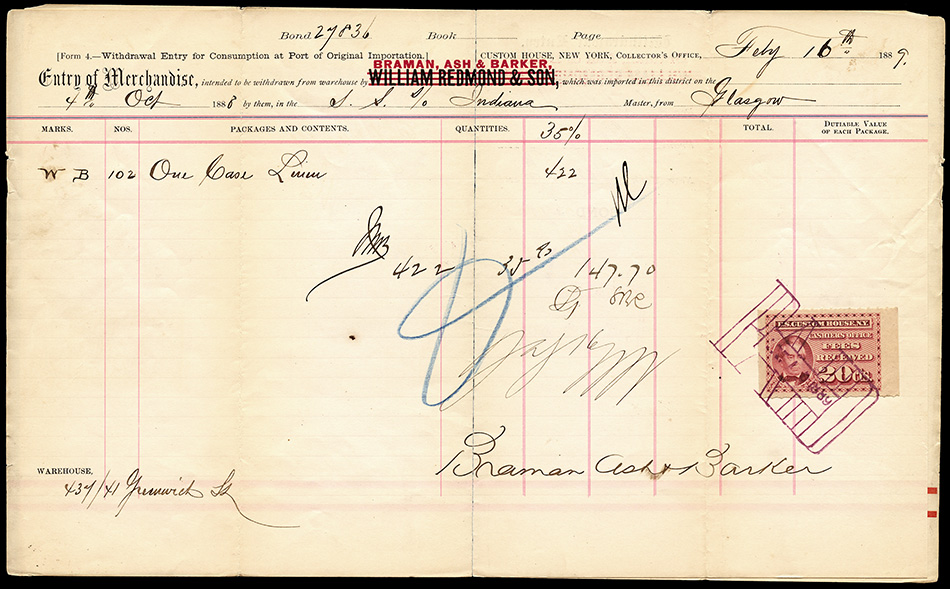 Bond 27836 Book Page
[Form 4.—Withdrawal Entry for Consumption at Port of Original Importation.] CUSTOM HOUSE, NEW YORK, COLLECTOR'S OFFICE, Feby 16th 1889.
BRAMAN, ASH & BARKER,
Entry of Merchandise, intended to be withdrawn from warehouse by WILLIAM REDMOND & SON, which was imported in this district on the
4th Oct 1888 by them, in the S. S. % Indiana Master, from Glasgow
MARKS. NOS. PACKAGES AND CONTENTS. QUANTITIES. 35% TOTAL. DUTIABLE VALUE OF EACH PACKAGE.
W B 102 One Case Linen 422
422 35% 147.70
U.S. CUSTOM HOUSE N.Y.
CASHIER'S OFFICE
FEES
RECEIVED
20 CTS.
Braman Ash & Barker
WAREHOUSE,
437/41 Greenwich St